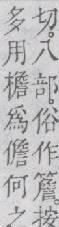 切。八部。俗作簷。按
多用檐爲儋何之